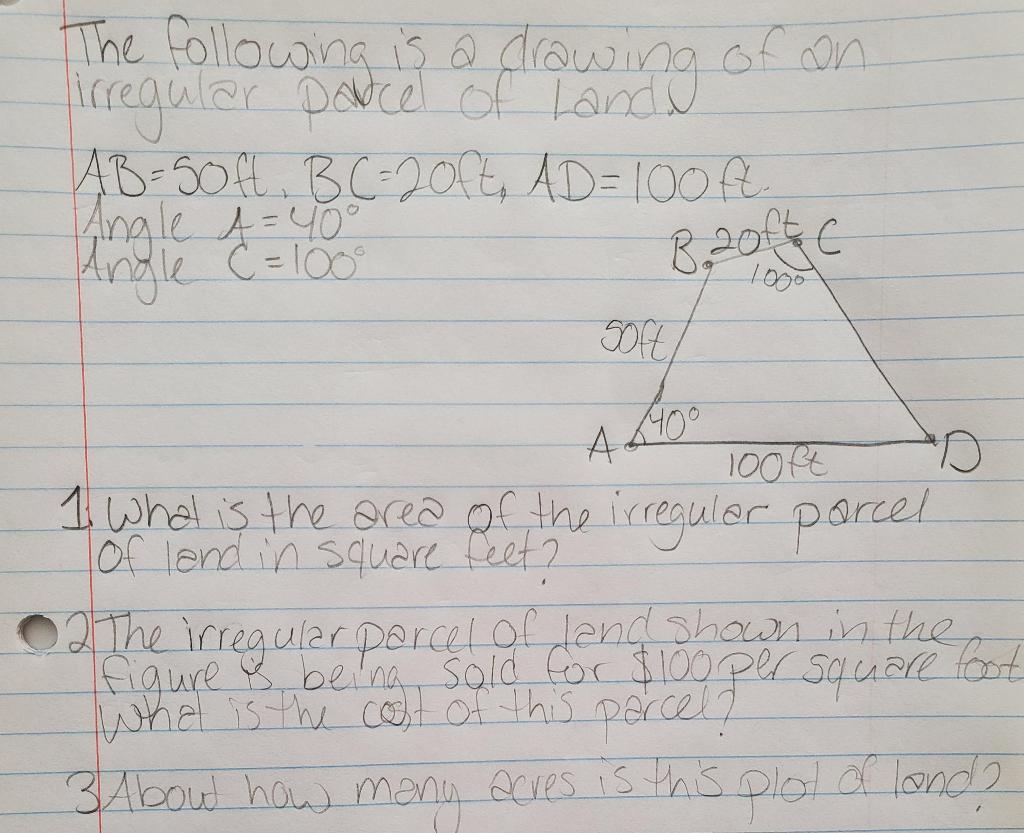 The following is a drawing of an
irregular parcel of Land.
AB=50ft. BC=20ft, AD=100ft.
Angle A=40°
Angle C=100°
B 20ft C
100°
50ft
40°
A D
100ft
1. What is the area of the irregular parcel
of land in square feet?
2 The irregular parcel of land shown in the
figure is being sold for $100 per square foot
What is the cost of this parcel?
3 About how many acres is this plot of land?